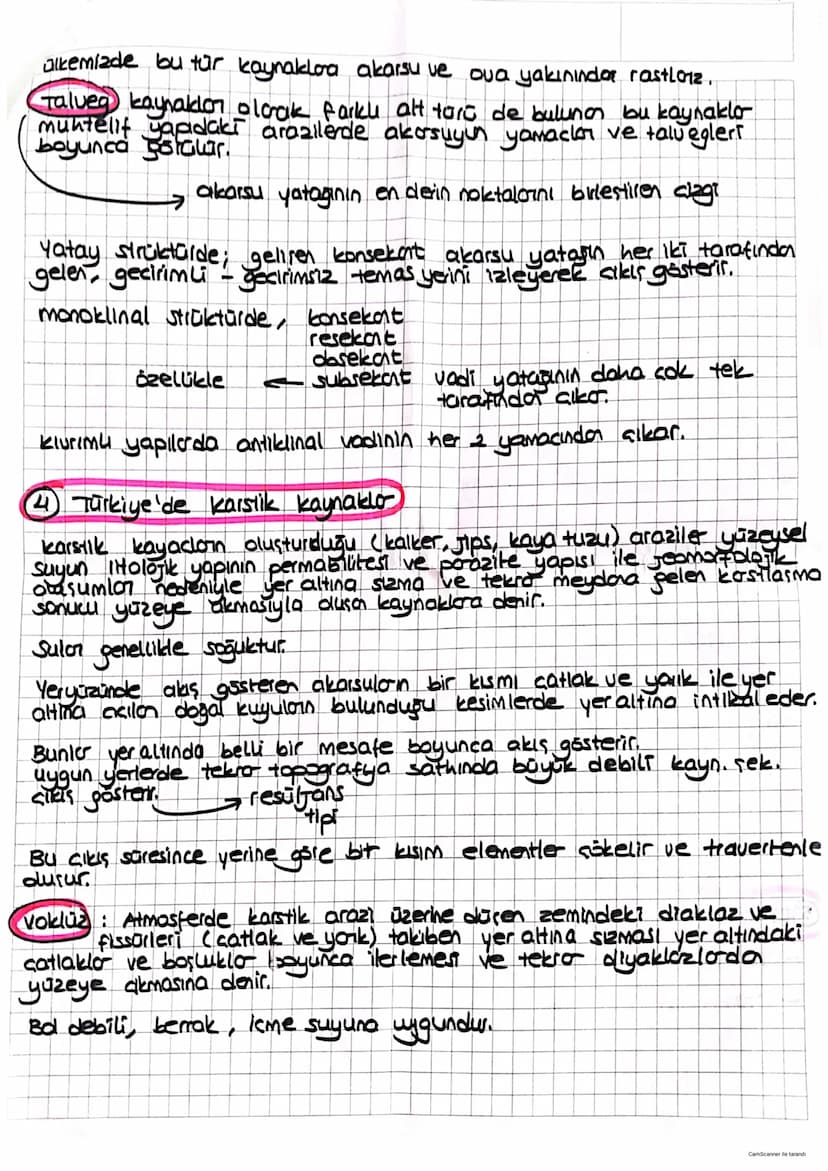 ülkemizde bu tür kaynaklara akarsu ve ova yakınından rastlarız.
Talveg kaynakları olarak farklı alt türü de bulunan bu kaynaklar
muhtelif yapıdaki arazilerde akarsuyun yamaçları ve talvegleri
boyunca görülür.
akarsu yatağının en derin noktalarını birleştiren çizgi
Yatay strüktürde; gelişen konsekant akarsu yatağın her iki tarafından
gelen, geçirimli - geçirimsiz temas yerini izleyerek çıkış gösterir.
monoklinal strüktürde, konsekant
resekant
obsekant
özellikle ← subsekant vadi yatağının daha çok tek
tarafından çıkar.
kıvrımlı yapılarda antiklinal vadinin her 2 yamacından çıkar.
4 Türkiye'de karstik kaynaklar
karstik kayaçların oluşturduğu (kalker, jips, kaya tuzu) araziler yüzeysel
suyun litolojik yapının permabilitesi ve porozite yapısı ile jeomorfolojik
oluşumlar nedeniyle yer altına sızma ve tekrar meydana gelen karstlaşma
sonucu yüzeye çıkmasıyla oluşan kaynaklara denir.
Suları genellikle soğuktur.
Yeryüzünde akış gösteren akarsuların bir kısmı çatlak ve yarık ile yer
altına açılan doğal kuyuların bulunduğu kesimlerde yer altına intikal eder.
Bunlar yer altında belli bir mesafe boyunca akış gösterir.
uygun yerlerde tekrar topografya sathında büyük debili kayn. şek.
çıkış gösterir. → resürjans
tipi
Bu çıkış süresince yerine göre bir kısım elementler çökelir ve travertenler
oluşur.
Voklüz : Atmosferde karstik arazi üzerine düşen zemindeki diaklaz ve
fissürleri (çatlak ve yarık) takiben yer altına sızması yer altındaki
çatlaklar ve boşluklar boyunca ilerlemesi ve tekrar diyaklazlardan
yüzeye çıkmasına denir.
Bol debili, berrak, içme suyuna uygundur.
CamScanner ile tarandı